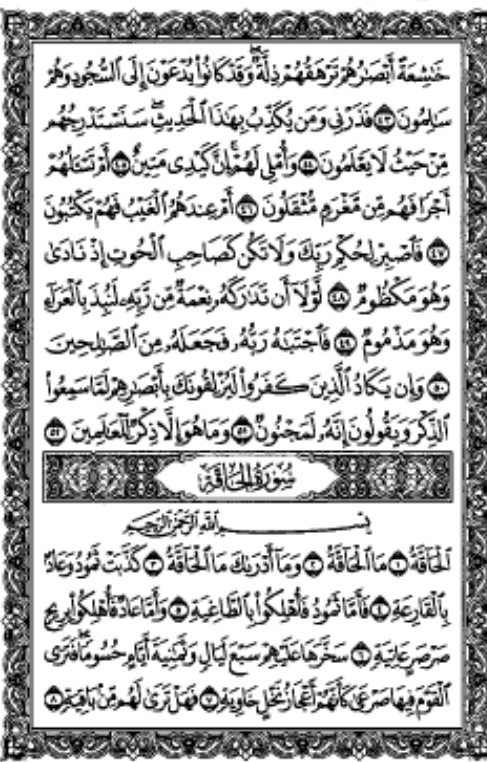 خَٰشِعَةً أَبْصَٰرُهُمْ تَرْهَقُهُمْ ذِلَّةٌ ۖ وَقَدْ كَانُوا۟ يُدْعَوْنَ إِلَى ٱلسُّجُودِ وَهُمْ
سَٰلِمُونَ ﴿٤٣﴾ فَذَرْنِى وَمَن يُكَذِّبُ بِهَٰذَا ٱلْحَدِيثِ ۖ سَنَسْتَدْرِجُهُم
مِّنْ حَيْثُ لَا يَعْلَمُونَ ﴿٤٤﴾ وَأُمْلِى لَهُمْ ۚ إِنَّ كَيْدِى مَتِينٌ ﴿٤٥﴾ أَمْ تَسْـَٔلُهُمْ
أَجْرًا فَهُم مِّن مَّغْرَمٍ مُّثْقَلُونَ ﴿٤٦﴾ أَمْ عِندَهُمُ ٱلْغَيْبُ فَهُمْ يَكْتُبُونَ
﴿٤٧﴾ فَٱصْبِرْ لِحُكْمِ رَبِّكَ وَلَا تَكُن كَصَاحِبِ ٱلْحُوتِ إِذْ نَادَىٰ
وَهُوَ مَكْظُومٌ ﴿٤٨﴾ لَّوْلَآ أَن تَدَٰرَكَهُۥ نِعْمَةٌ مِّن رَّبِّهِۦ لَنُبِذَ بِٱلْعَرَآءِ
وَهُوَ مَذْمُومٌ ﴿٤٩﴾ فَٱجْتَبَٰهُ رَبُّهُۥ فَجَعَلَهُۥ مِنَ ٱلصَّٰلِحِينَ
﴿٥٠﴾ وَإِن يَكَادُ ٱلَّذِينَ كَفَرُوا۟ لَيُزْلِقُونَكَ بِأَبْصَٰرِهِمْ لَمَّا سَمِعُوا۟
ٱلذِّكْرَ وَيَقُولُونَ إِنَّهُۥ لَمَجْنُونٌ ﴿٥١﴾ وَمَا هُوَ إِلَّا ذِكْرٌ لِّلْعَٰلَمِينَ ﴿٥٢﴾
سُورَةُ الْحَاقَّةِ
بِسْمِ ٱللَّهِ ٱلرَّحْمَٰنِ ٱلرَّحِيمِ
ٱلْحَآقَّةُ ﴿١﴾ مَا ٱلْحَآقَّةُ ﴿٢﴾ وَمَآ أَدْرَىٰكَ مَا ٱلْحَآقَّةُ ﴿٣﴾ كَذَّبَتْ ثَمُودُ وَعَادٌۢ
بِٱلْقَارِعَةِ ﴿٤﴾ فَأَمَّا ثَمُودُ فَأُهْلِكُوا۟ بِٱلطَّاغِيَةِ ﴿٥﴾ وَأَمَّا عَادٌ فَأُهْلِكُوا۟ بِرِيحٍ
صَرْصَرٍ عَاتِيَةٍ ﴿٦﴾ سَخَّرَهَا عَلَيْهِمْ سَبْعَ لَيَالٍ وَثَمَٰنِيَةَ أَيَّامٍ حُسُومًا فَتَرَى
ٱلْقَوْمَ فِيهَا صَرْعَىٰ كَأَنَّهُمْ أَعْجَازُ نَخْلٍ خَاوِيَةٍ ﴿٧﴾ فَهَلْ تَرَىٰ لَهُم مِّنۢ بَاقِيَةٍ ﴿٨﴾